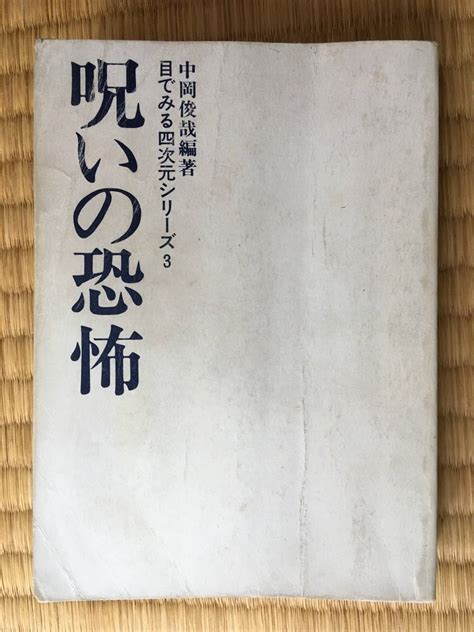 中岡俊哉編著
目でみる四次元シリーズ3
呪いの恐怖